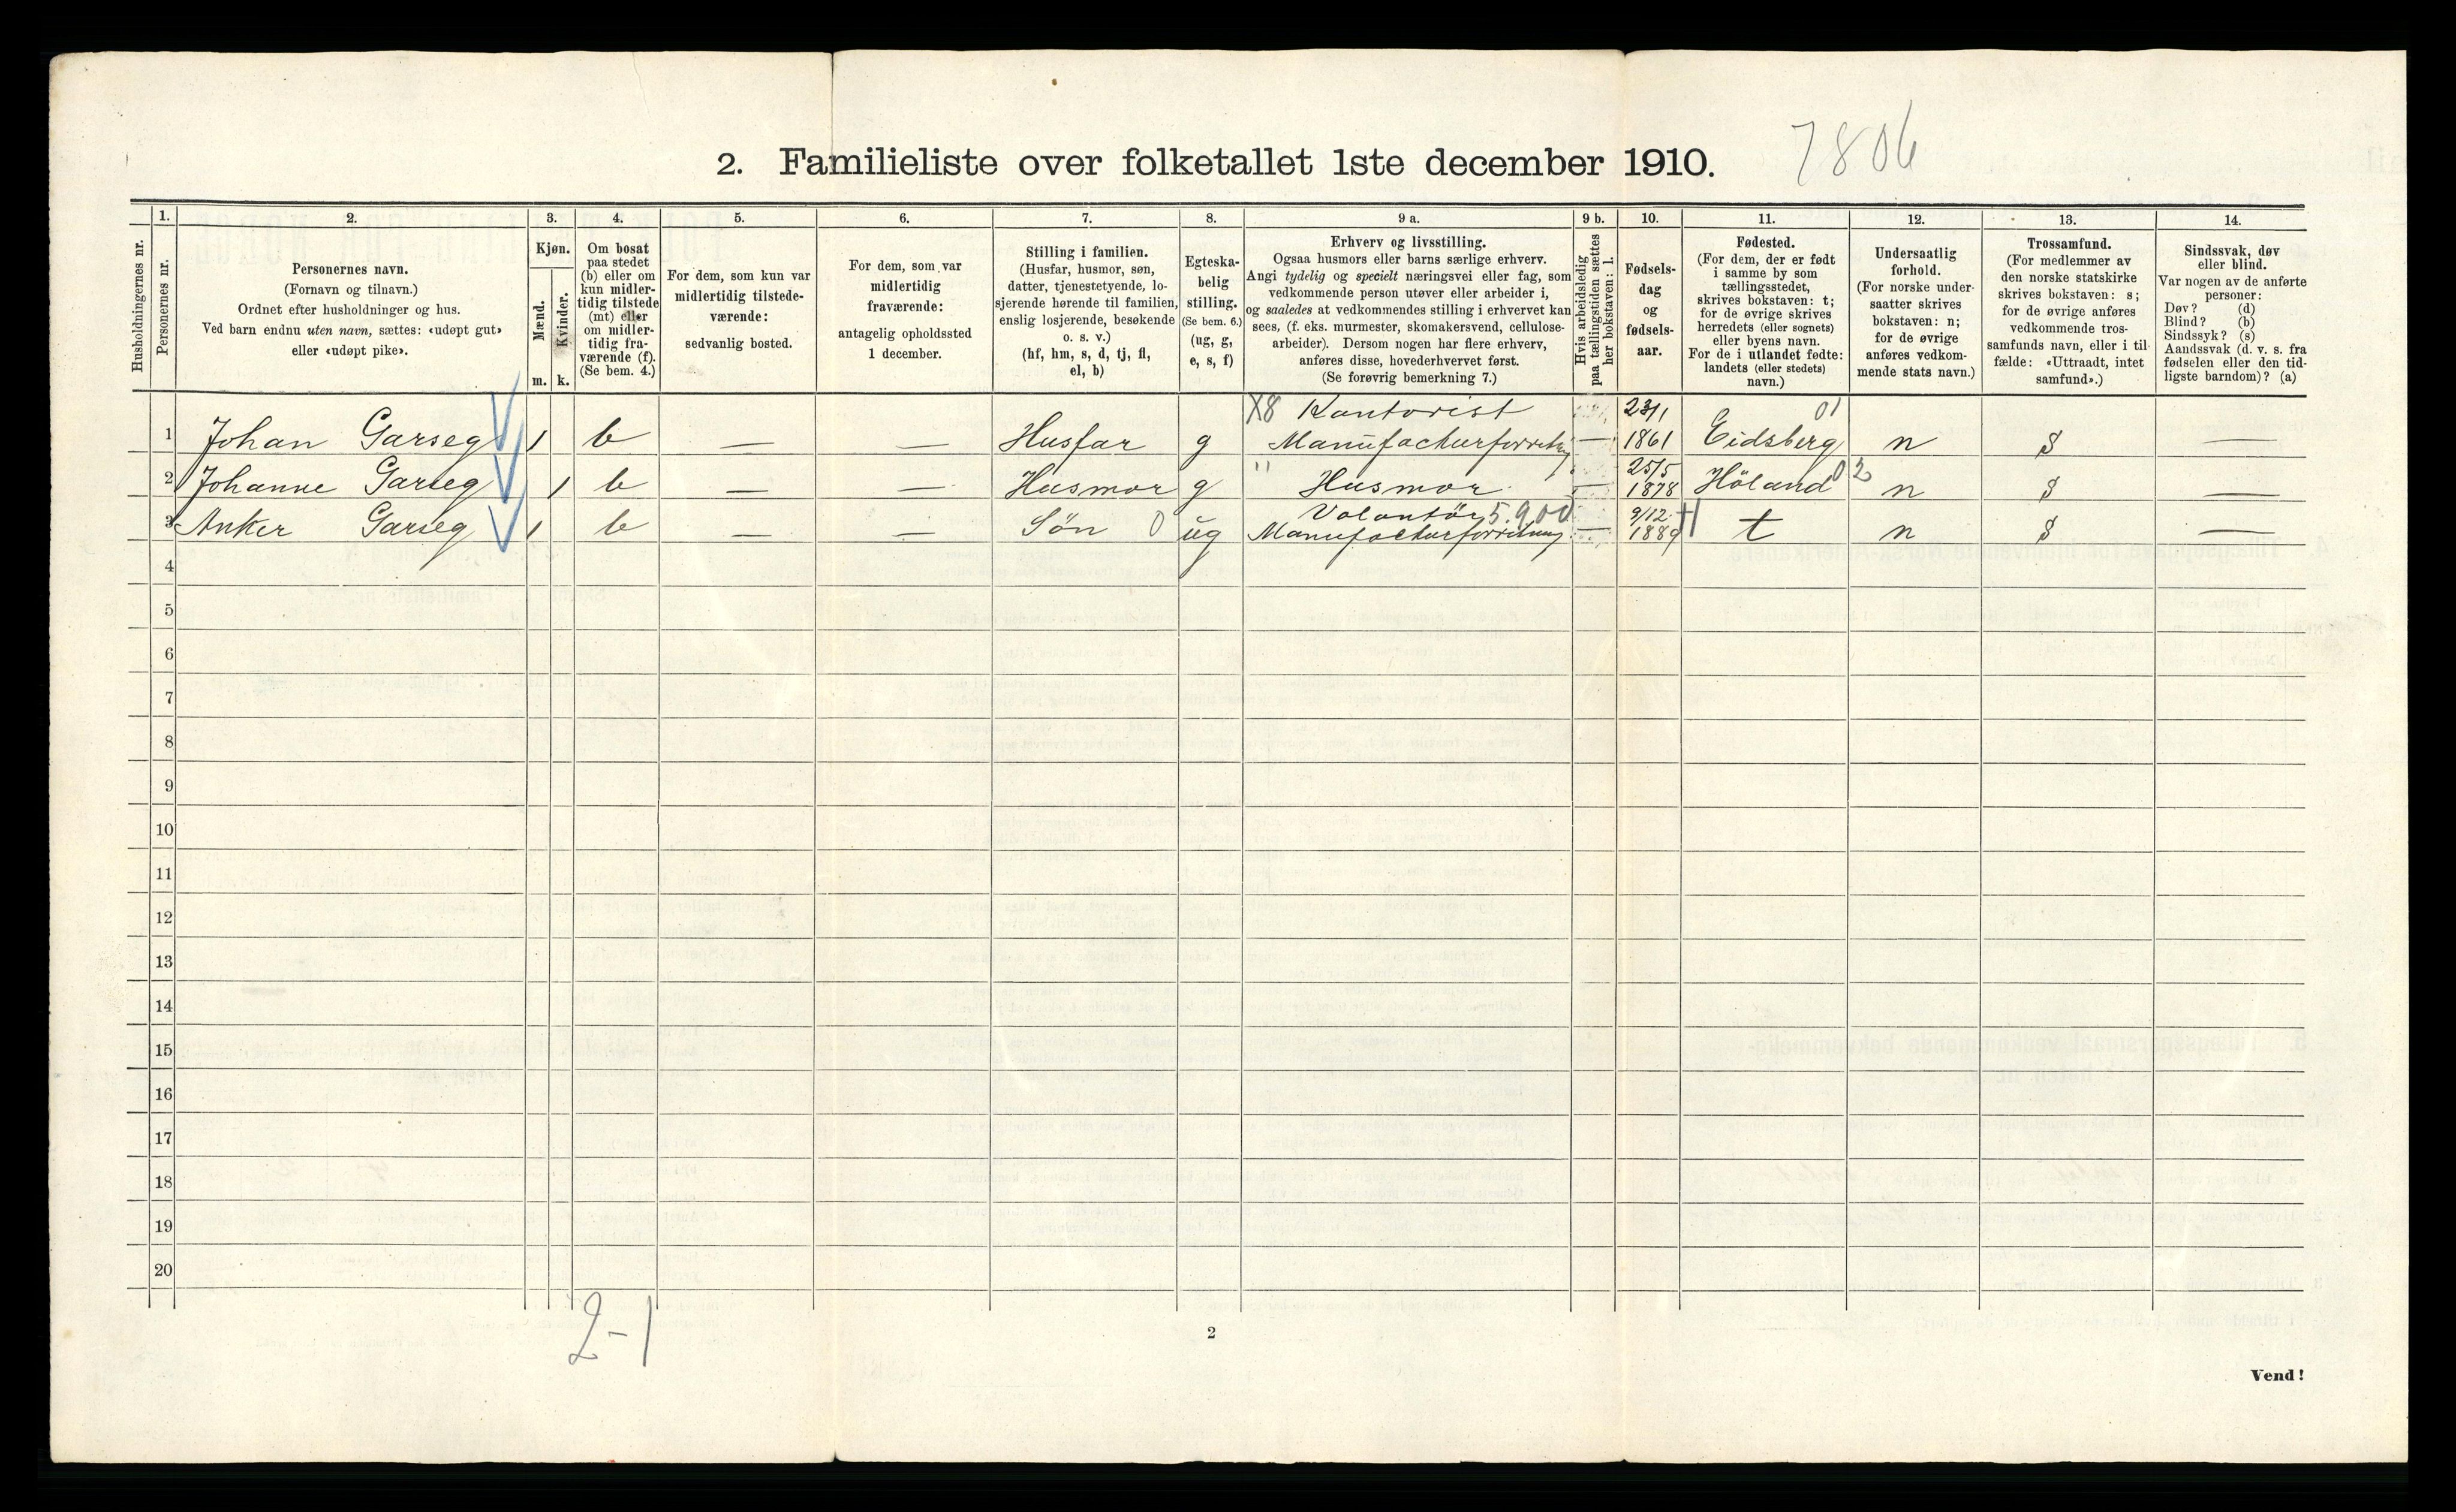 2. Familieliste over folketallet 1ste december 1910.
7806
Husholdningernes nr.
1.
Personernes nr.
2.
Personernes navn.
(Fornavn og tilnavn.)
Ordnet efter husholdninger og hus.
Ved barn endnu uten navn, sættes: «udøpt gut»
eller «udøpt pike».
3.
Kjøn.
Mænd.
Kvinder.
m. k.
4.
Om bosat
paa stedet
(b) eller om
kun midler-
tidig tilstede
(mt) eller
om midler-
tidig fra-
værende (f).
(Se bem. 4.)
5.
For dem, som kun var
midlertidig tilstede-
værende:
sedvanlig bosted.
6.
For dem, som var
midlertidig
fraværende:
antagelig opholdssted
1 december.
7.
Stilling i familien.
(Husfar, husmor, søn,
datter, tjenestetyende, lo-
sjerende hørende til familien,
enslig losjerende, besøkende
o. s. v.)
(hf, hm, s, d, tj, fl,
el, b)
8.
Egteska-
belig
stilling.
(Se bem. 6.)
(ug, g,
e, s, f)
9 a.
Erhverv og livsstilling.
Ogsaa husmors eller barns særlige erhverv.
Angi tydelig og specielt næringsvei eller fag, som
vedkommende person utøver eller arbeider i,
og saaledes at vedkommendes stilling i erhvervet kan
sees, (f. eks. murmester, skomakersvend, cellulose-
arbeider). Dersom nogen har flere erhverv,
anføres disse, hovederhvervet først.
(Se forøvrig bemerkning 7.)
9 b.
Hvis arbeidsledig
paa tællingstiden sættes
her bokstaven: l.
10.
Fødsels-
dag
og
fødsels-
aar.
11.
Fødested.
(For dem, der er født
i samme by som
tællingsstedet,
skrives bokstaven: t;
for de øvrige skrives
herredets (eller sognets)
eller byens navn.
For de i utlandet fødte:
landets (eller stedets)
navn.)
12.
Undersaatlig
forhold.
(For norske under-
saatter skrives
bokstaven: n;
for de øvrige
anføres vedkom-
mende stats navn.)
13.
Trossamfund.
(For medlemmer av
den norske statskirke
skrives bokstaven: s;
for de øvrige anføres
vedkommende tros-
samfunds navn, eller i til-
fælde: «Uttraadt, intet
samfund».)
14.
Sindssvak, døv
eller blind.
Var nogen av de anførte
personer:
Døv? (d)
Blind? (b)
Sindssyk? (s)
Aandssvak (d. v. s. fra
fødselen eller den tid-
ligste barndom)? (a)
X8 Kontorist 23/1 01
1 Johan Garseg 1 b — — Husfar g Manufacturforretng — 1861 Eidsberg n S —
" 25/5
2 Johanne Garseg 1 b — — Husmor g Husmor — 1878 Höland 02 n S —
Volontör 5.9.00 9/12
3 Anker Garseg 1 b — — Sön 0 ug Manufacturforretning — 1889 t n S —
4
5
6
7
8
9
10
11
12
13
14
15
16
17
18
19
20
2-1
2
Vend!